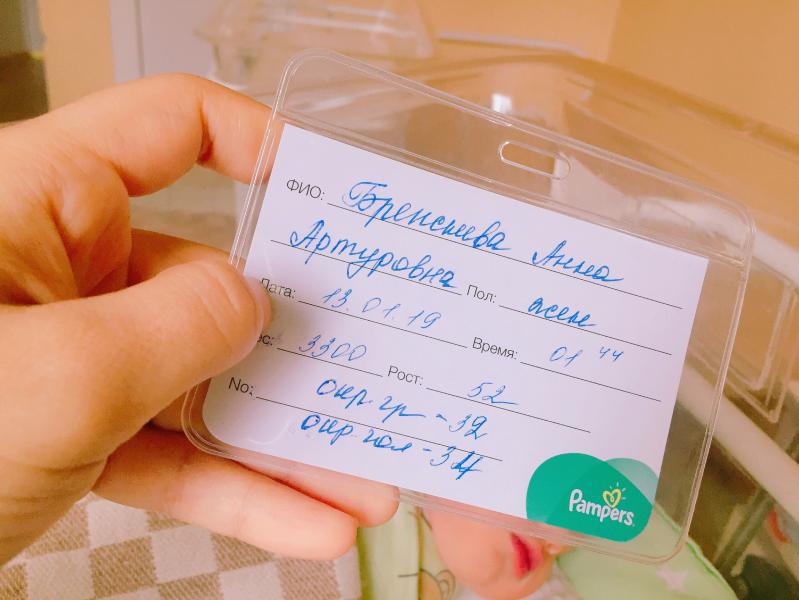 ФИО: Бренснева Анна
Артуровна Пол: жен
Дата: 13.01.19 Время: 01 44
ес: 3300 Рост: 52
No: окр. гр - 32
окр. гол - 34
Pampers